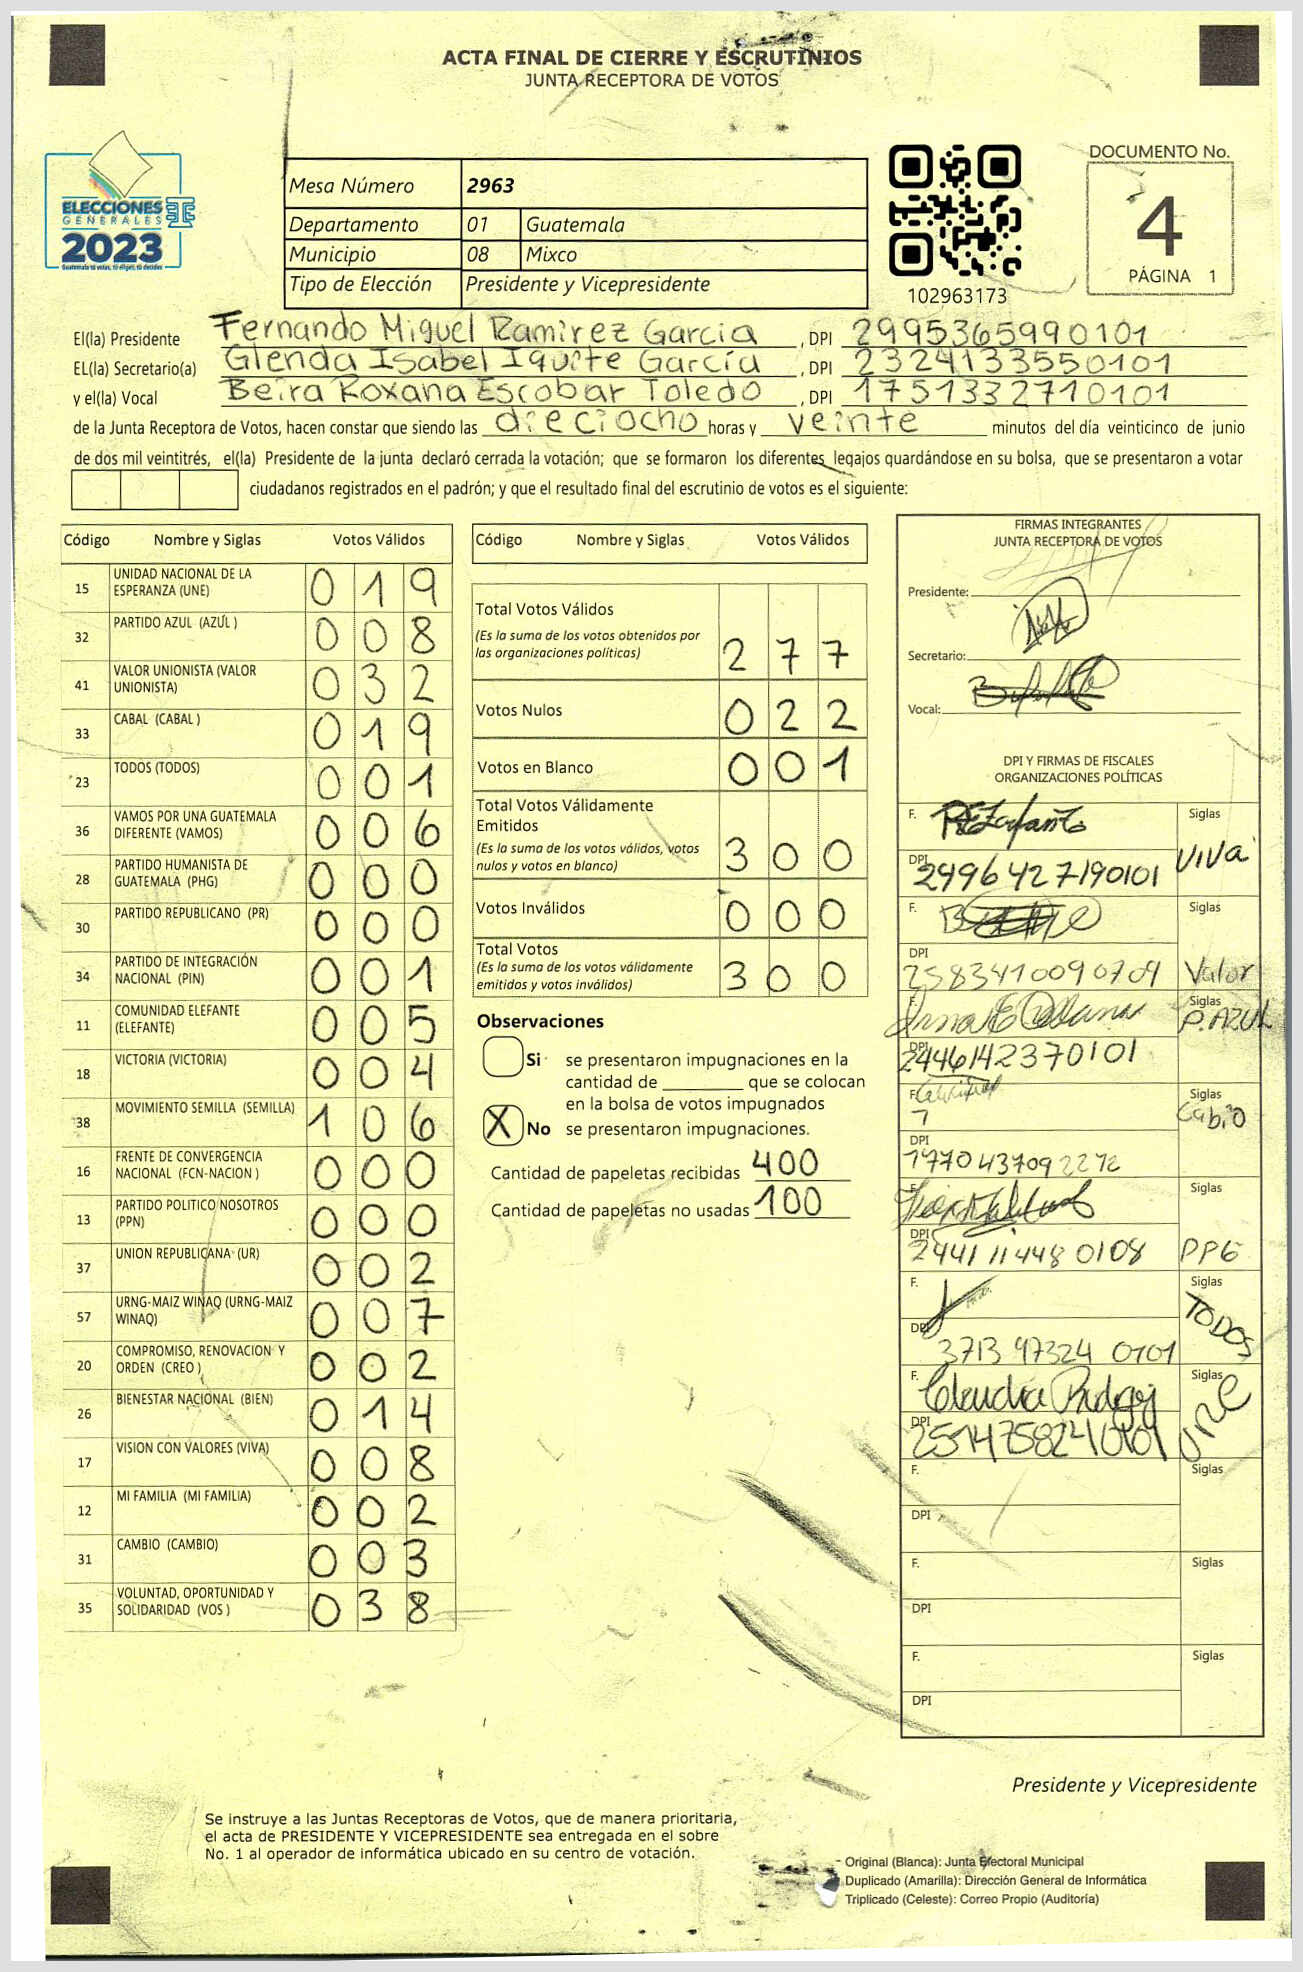 ACTA FINAL DE CIERRE Y ESCRUTINIOS
JUNTA RECEPTORA DE VOTOS
ELECCIONES
GENERALES
2023
Guatemala tú votas, tú eliges, tú decides
Mesa Número 2963
Departamento 01 Guatemala
Municipio 08 Mixco
Tipo de Elección Presidente y Vicepresidente
102963173
DOCUMENTO No.
4
PÁGINA 1
El(la) Presidente Fernando Miguel Ramirez Garcia, DPI 2995365990101
EL(la) Secretario(a) Glenda Isabel Iquite García, DPI 2324133550101
y el(la) Vocal Beira Roxana Escobar Toledo, DPI 1751332710101
de la Junta Receptora de Votos, hacen constar que siendo las dieciocho horas y veinte minutos del día veinticinco de junio
de dos mil veintitrés, el(la) Presidente de la junta declaró cerrada la votación; que se formaron los diferentes legajos guardándose en su bolsa, que se presentaron a votar
ciudadanos registrados en el padrón; y que el resultado final del escrutinio de votos es el siguiente:
Código Nombre y Siglas Votos Válidos
15 UNIDAD NACIONAL DE LA ESPERANZA (UNE) 019
32 PARTIDO AZUL (AZUL ) 008
41 VALOR UNIONISTA (VALOR UNIONISTA) 032
33 CABAL (CABAL ) 019
23 TODOS (TODOS) 001
36 VAMOS POR UNA GUATEMALA DIFERENTE (VAMOS) 006
28 PARTIDO HUMANISTA DE GUATEMALA (PHG) 000
30 PARTIDO REPUBLICANO (PR) 000
34 PARTIDO DE INTEGRACIÓN NACIONAL (PIN) 001
11 COMUNIDAD ELEFANTE (ELEFANTE) 005
18 VICTORIA (VICTORIA) 004
38 MOVIMIENTO SEMILLA (SEMILLA) 106
16 FRENTE DE CONVERGENCIA NACIONAL (FCN-NACION ) 000
13 PARTIDO POLITICO NOSOTROS (PPN) 000
37 UNION REPUBLICANA (UR) 002
57 URNG-MAIZ WINAQ (URNG-MAIZ WINAQ) 007
20 COMPROMISO, RENOVACION Y ORDEN (CREO ) 002
26 BIENESTAR NACIONAL (BIEN) 014
17 VISION CON VALORES (VIVA) 008
12 MI FAMILIA (MI FAMILIA) 002
31 CAMBIO (CAMBIO) 003
35 VOLUNTAD, OPORTUNIDAD Y SOLIDARIDAD (VOS ) 038
Código Nombre y Siglas Votos Válidos
Total Votos Válidos
(Es la suma de los votos obtenidos por
las organizaciones políticas) 277
Votos Nulos 022
Votos en Blanco 001
Total Votos Válidamente
Emitidos
(Es la suma de los votos válidos, votos
nulos y votos en blanco) 300
Votos Inválidos 000
Total Votos
(Es la suma de los votos válidamente
emitidos y votos inválidos) 300
Observaciones
Si se presentaron impugnaciones en la
cantidad de ________ que se colocan
en la bolsa de votos impugnados
X No se presentaron impugnaciones.
Cantidad de papeletas recibidas 400
Cantidad de papeletas no usadas 100
FIRMAS INTEGRANTES
JUNTA RECEPTORA DE VOTOS
Presidente:
Secretario:
Vocal:
DPI Y FIRMAS DE FISCALES
ORGANIZACIONES POLÍTICAS
F. Siglas VIVA
DPI 2996427190101
F. Siglas Valor
DPI 2583410090709
F. Siglas P. AZUL
DPI 2446142370101
F. Siglas
DPI 1970437092272
F. Siglas
DPI 2441114480108
F. Siglas TODOS
DPI 3713973240101
F. Claudia Siglas UNE
DPI 2514758240101
F. Siglas
DPI
F. Siglas
DPI
F. Siglas
DPI
Presidente y Vicepresidente
Se instruye a las Juntas Receptoras de Votos, que de manera prioritaria,
el acta de PRESIDENTE Y VICEPRESIDENTE sea entregada en el sobre
No. 1 al operador de informática ubicado en su centro de votación.
Original (Blanca): Junta Electoral Municipal
Duplicado (Amarilla): Dirección General de Informática
Triplicado (Celeste): Correo Propio (Auditoría)